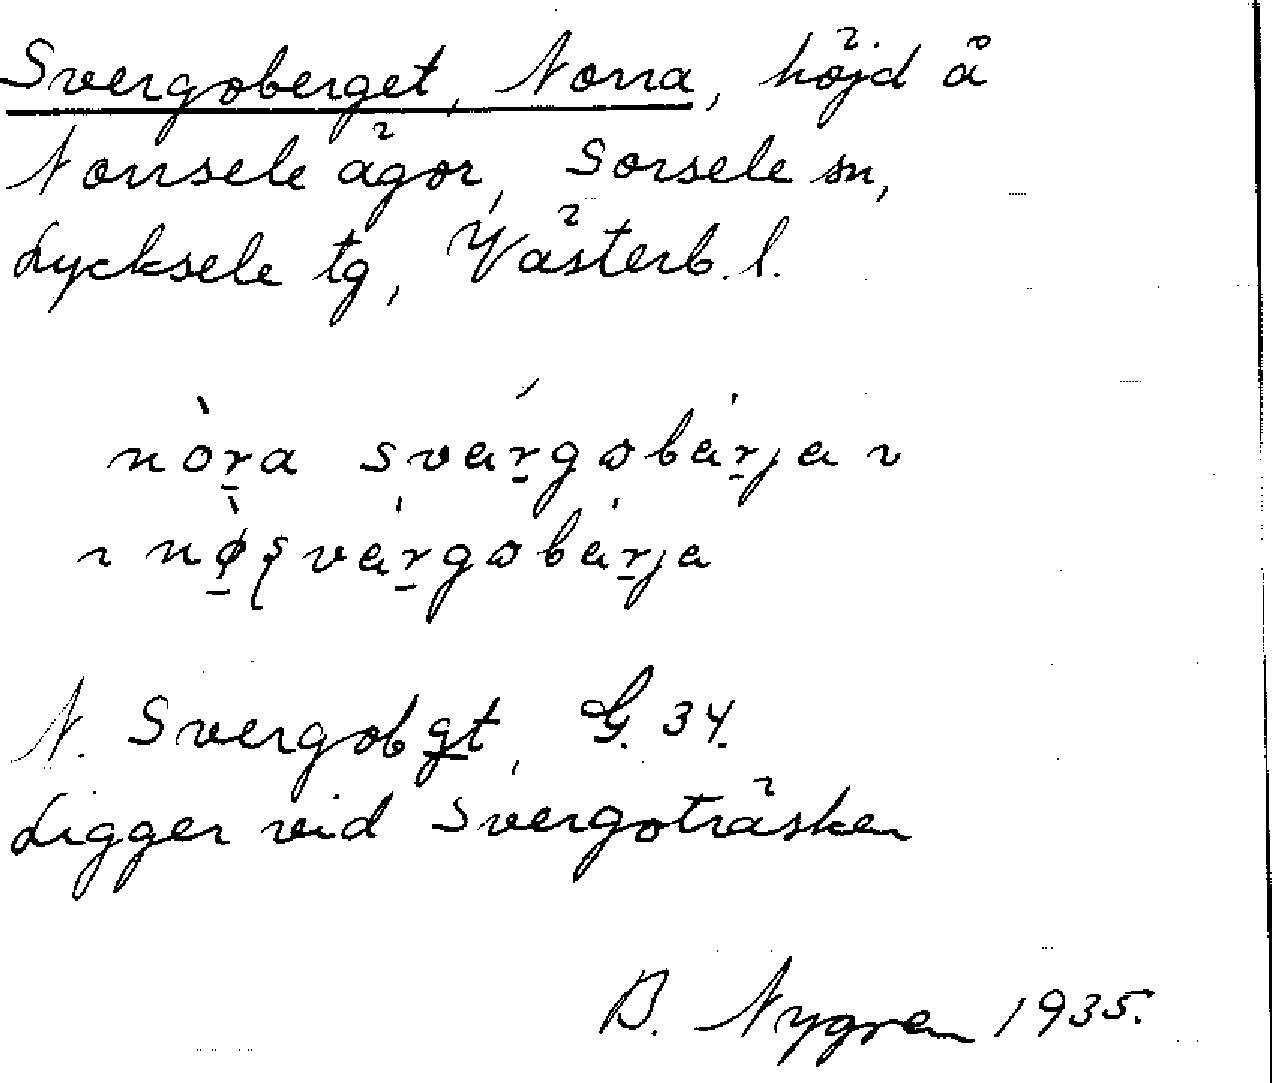 Svergoberget, Norra, höjd å
Norrsele ägor, Sorsele sn,
Lycksele tg, Västerb. l.
nòra svárgobárja
nøsvárgobárja
N. Svergobgt, G. 34.
Ligger vid Svergoträsken
B. Nygren 1935.